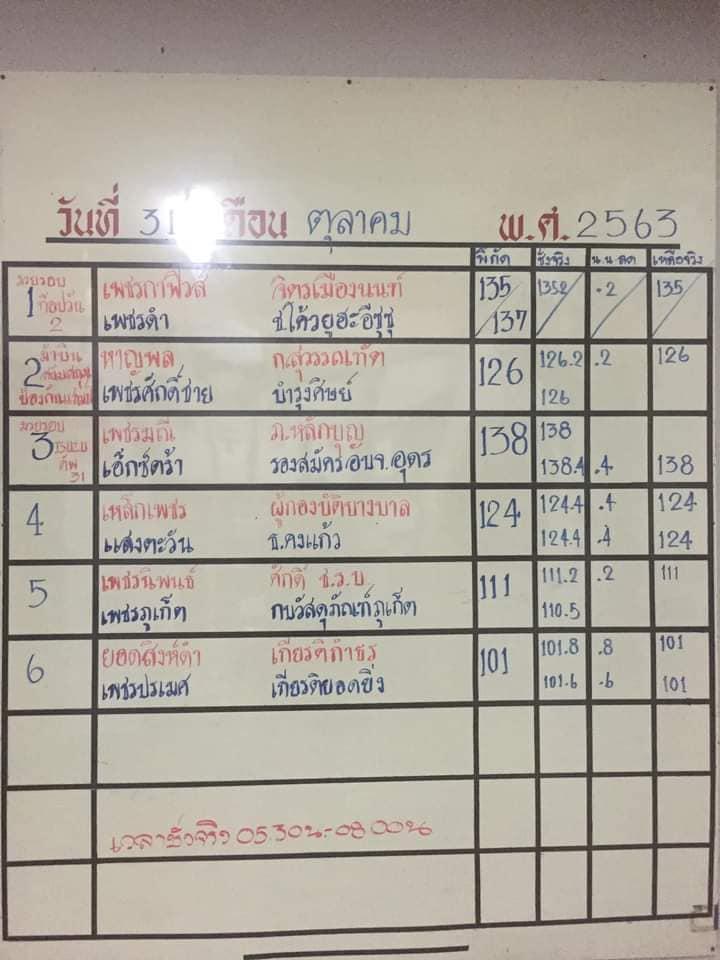 วันที่ 31 เดือน ตุลาคม พ.ศ. 2563
พิกัด ชั่งจริง น.น ลด เหลือจริง
มวยรอบ
1 เพชรกาฬสิงห์ จิตรเมืองนนท์ 135 135.2 .2 135
เพชรดำ ช.โค้วยูฮะอีซูซุ 137
2 หาญพล ก.สุวรรณทัต 126 126.2 .2 126
เพชรศักดิ์ชาย บำรุงศิษย์ 126
มวยรอบ
3 เพชรมณี ภ.หลักบุญ 138 138
31 เอ็กซ์ตร้า รองสมัครอบจ.อุดร 138.4 .4 138
4 เหล็กเพชร ผู้กองบัติบางบาล 124 124.4 .4 124
แสงตะวัน ธ.คงแก้ว 124.4 .4 124
5 เพชรนิพนธ์ ศักดิ์ ช.ร.บ 111 111.2 .2 111
เพชรภูเก็ต กบวัสดุภัณฑ์ภูเก็ต 110.5
6 ยอดสิงห์ดำ เกียรติกำธร 101 101.8 .8 101
เพชรปรเมศ เกียรติยอดยิ่ง 101.6 .6 101
เวลาชั่งจริง 05.30น-08.00น